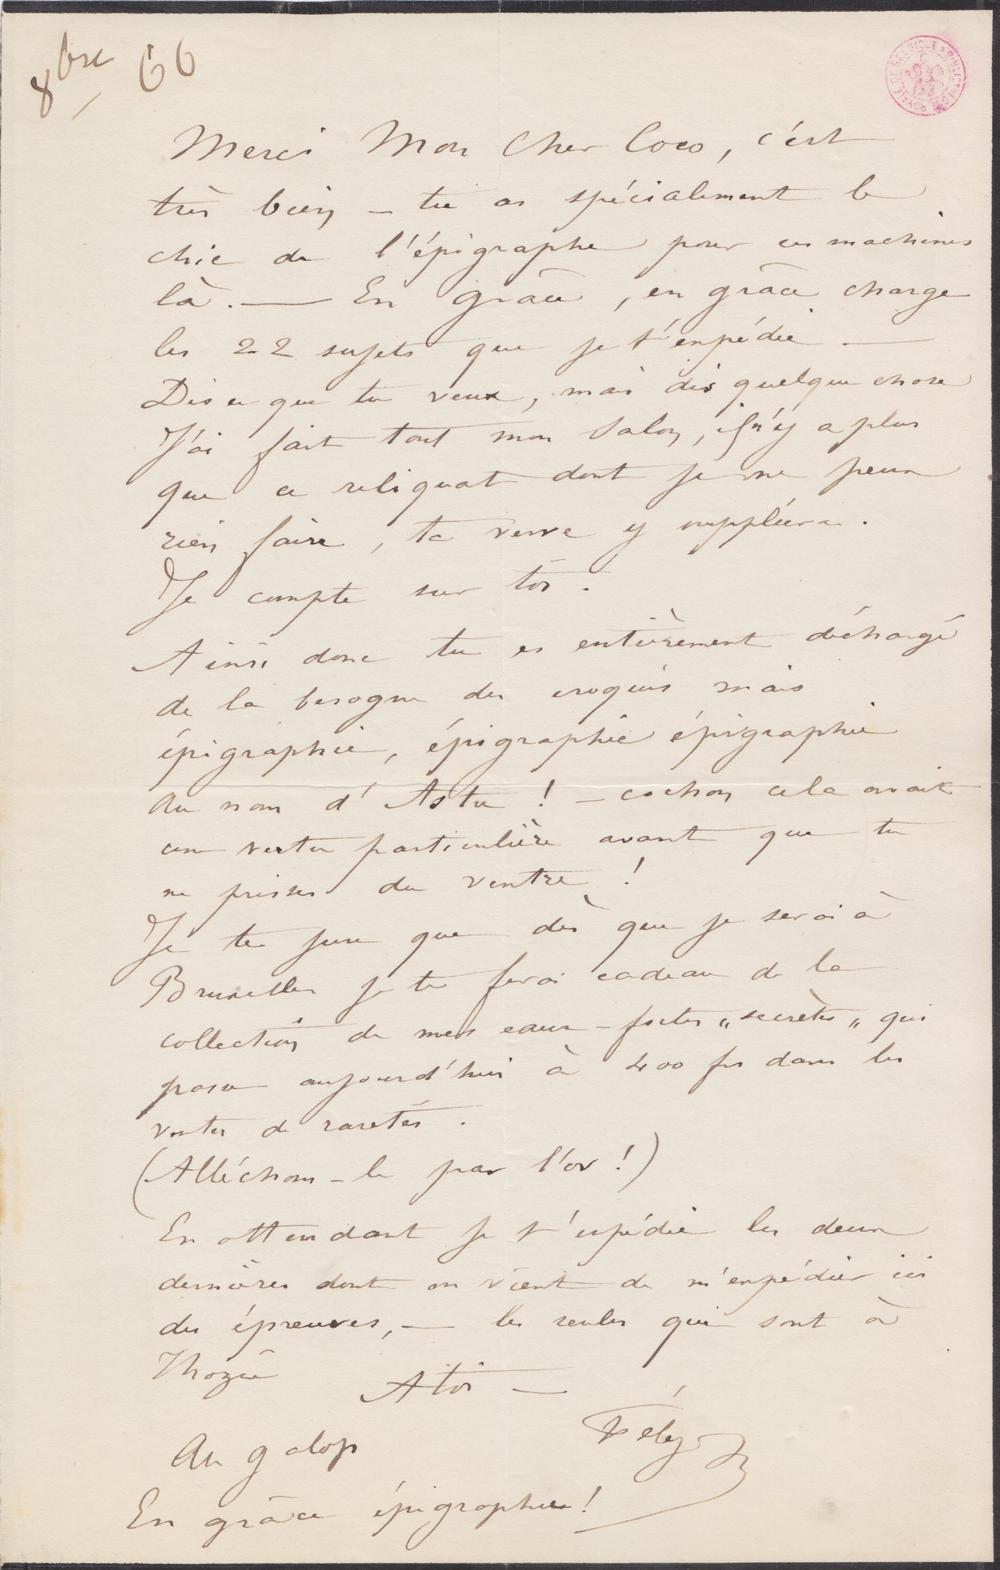 8bre 66
BIBLIOTHÈQUE ROYALE DE BELGIQUE
Merci Mon Cher Coco, c'est
très bien – tu as spécialement le
chic de l'épigraphe pour ces machines
là. — En grâce, en grâce charge
les 22 sujets que je t'expédie —
Dis ce que tu veux, mais dis quelque chose
J'ai fait tout mon Salon, il n'y a plus
que ce reliquat dont je ne peux
rien faire, ta verve y suppléera.
Je compte sur toi.
Ainsi donc tu es entièrement déchargé
de la besogne des croquis mais
épigraphie, épigraphie épigraphie
au nom d'Astu ! – cochon cela avait
une vertu particulière avant que tu
ne prisses du ventre !
Je te jure que dès que je serai à
Bruxelles je te ferai cadeau de la
collection de mes eaux-fortes „secrètes„ qui
passe aujourd'hui à 400 frs dans les
ventes de raretés.
(Alléchons-le par l'or !)
En attendant je t'expédie les deux
dernières dont on vient de m'expédier ici
des épreuves, — les seules qui sont à
Thozée
A toi —
Fély
Au galop
En grâce épigraphie !